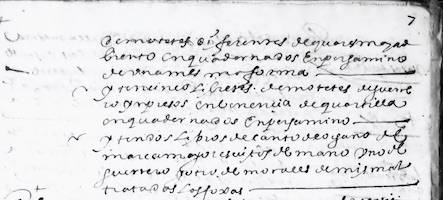 7
de motetes diferentes de quaresma y ad
biento enquadernados en pergamino
de una mesma forma
yten cinco libretes de motetes de guerre
ro ynpresos en benencia de quartilla
enquadernados en pergamino
yten dos libros de canto de organo de
marca mayor escritos de mano uno de
guerrero y otro de morales de mis mal
tratados las foxas